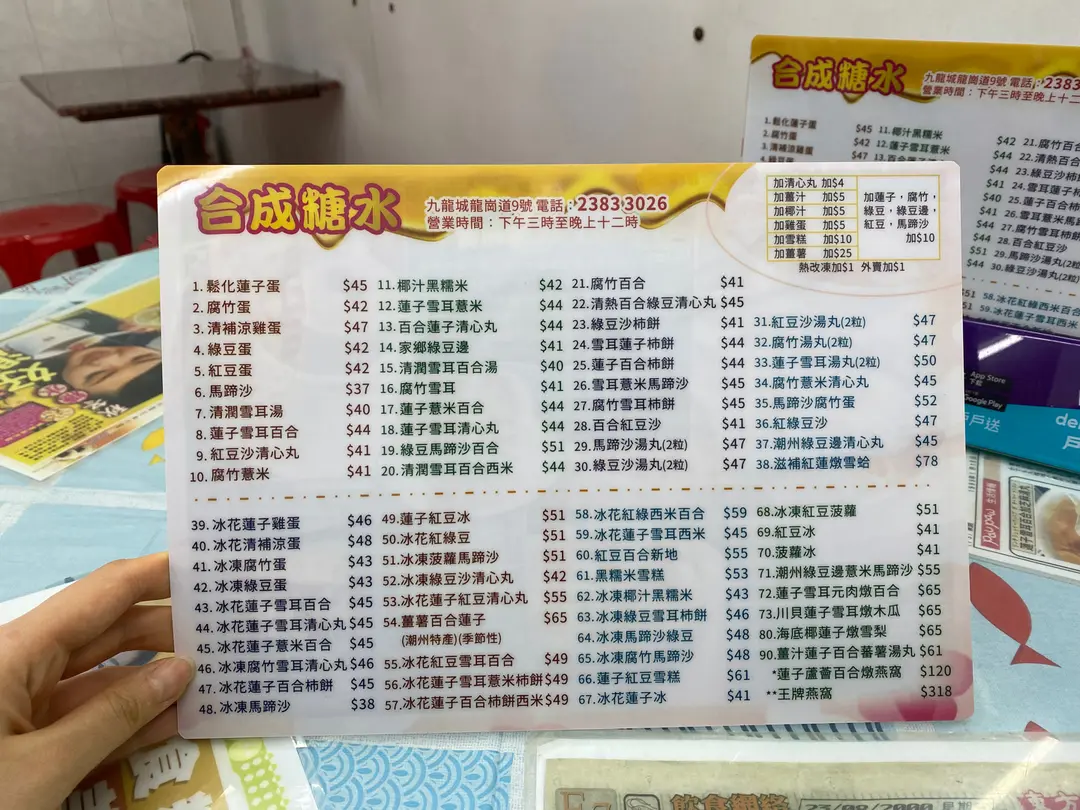 合成糖水
九龍城龍崗道9號 電話：2383 3026
營業時間：下午三時至晚上十二時
加清心丸 加$4
加薑汁 加$5
加椰汁 加$5
加雞蛋 加$5
加雪糕 加$10
加薑薯 加$25
加蓮子，腐竹，
綠豆，綠豆邊，
紅豆，馬蹄沙
加$10
熱改凍加$1 外賣加$1
1. 鬆化蓮子蛋 $45
2. 腐竹蛋 $42
3. 清補涼雞蛋 $47
4. 綠豆蛋 $42
5. 紅豆蛋 $42
6. 馬蹄沙 $37
7. 清潤雪耳湯 $40
8. 蓮子雪耳百合 $44
9. 紅豆沙清心丸 $41
10. 腐竹薏米 $41
11. 椰汁黑糯米 $42
12. 蓮子雪耳薏米 $44
13. 百合蓮子清心丸 $44
14. 家鄉綠豆邊 $41
15. 清潤雪耳百合湯 $40
16. 腐竹雪耳 $41
17. 蓮子薏米百合 $44
18. 蓮子雪耳清心丸 $44
19. 綠豆馬蹄沙百合 $51
20. 清潤雪耳百合西米 $44
21. 腐竹百合 $41
22. 清熱百合綠豆清心丸 $45
23. 綠豆沙柿餅 $41
24. 雪耳蓮子柿餅 $44
25. 蓮子百合柿餅 $44
26. 雪耳薏米馬蹄沙 $45
27. 腐竹雪耳柿餅 $45
28. 百合紅豆沙 $41
29. 馬蹄沙湯丸(2粒) $47
30. 綠豆沙湯丸(2粒) $47
31. 紅豆沙湯丸(2粒) $47
32. 腐竹湯丸(2粒) $47
33. 蓮子雪耳湯丸(2粒) $50
34. 腐竹薏米清心丸 $45
35. 馬蹄沙腐竹蛋 $52
36. 紅綠豆沙 $47
37. 潮州綠豆邊清心丸 $45
38. 滋補紅蓮燉雪蛤 $78
39. 冰花蓮子雞蛋 $46
40. 冰花清補涼蛋 $48
41. 冰凍腐竹蛋 $43
42. 冰凍綠豆蛋 $43
43. 冰花蓮子雪耳百合 $45
44. 冰花蓮子雪耳清心丸 $45
45. 冰花蓮子薏米百合 $45
46. 冰凍腐竹雪耳清心丸 $46
47. 冰花蓮子百合柿餅 $45
48. 冰凍馬蹄沙 $38
49. 蓮子紅豆冰 $51
50. 冰花紅綠豆 $51
51. 冰凍菠蘿馬蹄沙 $51
52. 冰凍綠豆沙清心丸 $42
53. 冰花蓮子紅豆清心丸 $55
54. 薑薯百合蓮子 $65
(潮州特產)(季節性)
55. 冰花紅豆雪耳百合 $49
56. 冰花蓮子雪耳薏米柿餅 $49
57. 冰花蓮子百合柿餅西米 $49
58. 冰花紅綠西米百合 $59
59. 冰花蓮子雪耳西米 $45
60. 紅豆百合新地 $55
61. 黑糯米雪糕 $53
62. 冰凍椰汁黑糯米 $43
63. 冰凍綠豆雪耳柿餅 $46
64. 冰凍馬蹄沙綠豆 $48
65. 冰凍腐竹馬蹄沙 $48
66. 蓮子紅豆雪糕 $61
67. 冰花蓮子冰 $41
68. 冰凍紅豆菠蘿 $51
69. 紅豆冰 $41
70. 菠蘿冰 $41
71. 潮州綠豆邊薏米馬蹄沙 $55
72. 蓮子雪耳元肉燉百合 $65
73. 川貝蓮子雪耳燉木瓜 $65
80. 海底椰蓮子燉雪梨 $65
90. 薑汁蓮子百合蕃薯湯丸 $61
*蓮子蘆薈百合燉燕窩 $120
**王牌燕窩 $318
合成糖水
九龍城龍崗道9號 電話：2383
營業時間：下午三時至晚上十二
1. 鬆化蓮子蛋 $45
2. 腐竹蛋 $42
3. 清補涼雞蛋 $47
11. 椰汁黑糯米 $42
12. 蓮子雪耳薏米 $44
$44
$41
$40
$41
$44
$44
$51
$44
21. 腐竹百合
22. 清熱百合
23. 綠豆沙柿
24. 雪耳蓮子柿
25. 蓮子百合
26. 雪耳薏米馬
27. 腐竹雪耳柿
28. 百合紅豆沙
29. 馬蹄沙湯丸(2
30. 綠豆沙湯丸(2
58. 冰花紅綠西米百
59. 冰花蓮子雪耳西
App Store
下載
Google Play
戶戶送
del
飲食網絡
23/08/2000